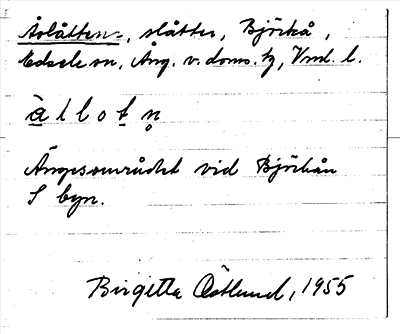 Åslåtten, slåtter, Björkå,
Edsele sn, Ång. v. doms. tg, Vnrl. l.
à l l o t n̥
Ängsområdet vid Björkån
S byn.
Birgitta Östlund, 1955